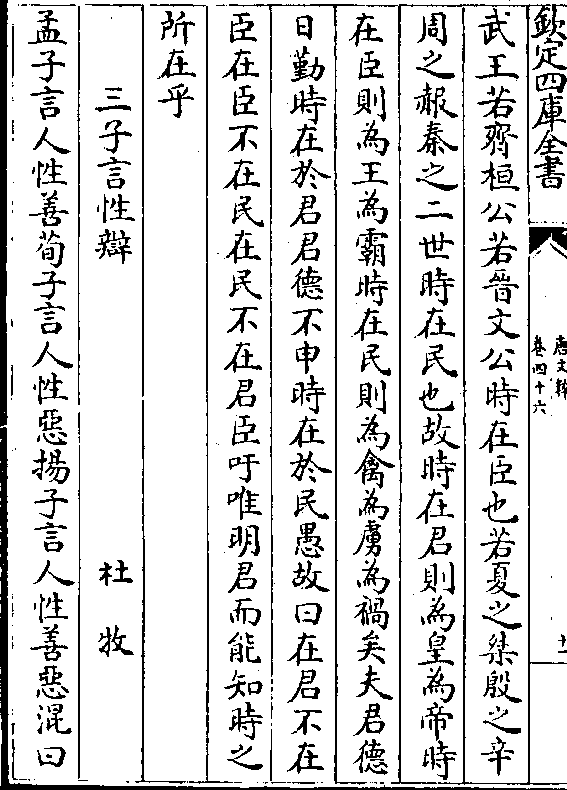 欽定四庫全書
唐文粹
卷四十六
十一
武王若齊桓公若晉文公時在臣也若夏之桀殷之辛
周之赧秦之二世時在民也故時在君則為皇為帝時
在臣則為王為霸時在民則為禽為虜為禍矣夫君德
日勤時在於君君德不申時在於民愚故曰在君不在
臣在臣不在民在民不在君臣吁唯明君而能知時之
所在乎
三子言性辯 杜牧
孟子言人性善荀子言人性惡揚子言人性善惡混曰